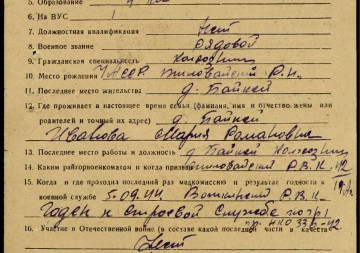 5. Образование
6. На ВУС 1
7. Должностная квалификация Нет
8. Военное звание Рядовой
9. Гражданская специальность Колхозник
10. Место рождения Р.Н.
11. Последнее место жительства д. Байкей
12. Где проживает в настоящее время семья (фамилия, имя и отчество жены или
родителей и точный их адрес) д. Байкей
Иванова Мария Романовна
13. Последнее место работы и должность д. Байкей Колхозник
14. Каким райгорвоенкоматом и когда призван Р.В.К.
15. Когда и где проходил последний раз медкомиссию и результат годности к
военной службе 5.09.42 Р.В.К.
Годен к строевой службе по гр 1
пр. НКО 336-42
16. Участие в Отечественной войне (в составе какой последней части и в качестве
Нет